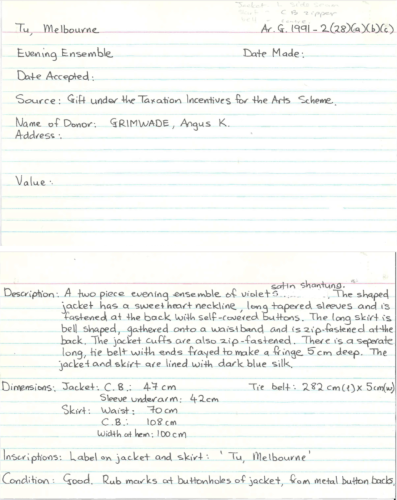 Tu, Melbourne
Ar. G. 1991-2(28)(a)(b)(c)
Evening Ensemble
Date Made:
Date Accepted:
Source: Gift under the Taxation Incentives for the Arts Scheme.
Name of Donor: GRIMWADE, Angus K.
Address:
Value:
satin shantung.
Description: A two piece evening ensemble of violet S...... ... The shaped
jacket has a sweetheart neckline, long tapered sleeves and is
fastened at the back with self-covered buttons. The long skirt is
bell shaped, gathered onto a waistband and is zip-fastened at the
back. The jacket cuffs are also zip-fastened. There is a seperate
long, tie belt with ends frayed to make a fringe 5cm deep. The
jacket and skirt are lined with dark blue silk.
Dimensions: Jacket: C.B.: 47cm Tie belt: 282cm(l) x 5cm(w)
Sleeve underarm: 42cm
Skirt: Waist: 70cm
C.B.: 108cm
Width at hem: 100cm
Inscriptions: Label on jacket and skirt: 'Tu, Melbourne'
Condition: Good. Rub marks at buttonholes of jacket, from metal button backs.